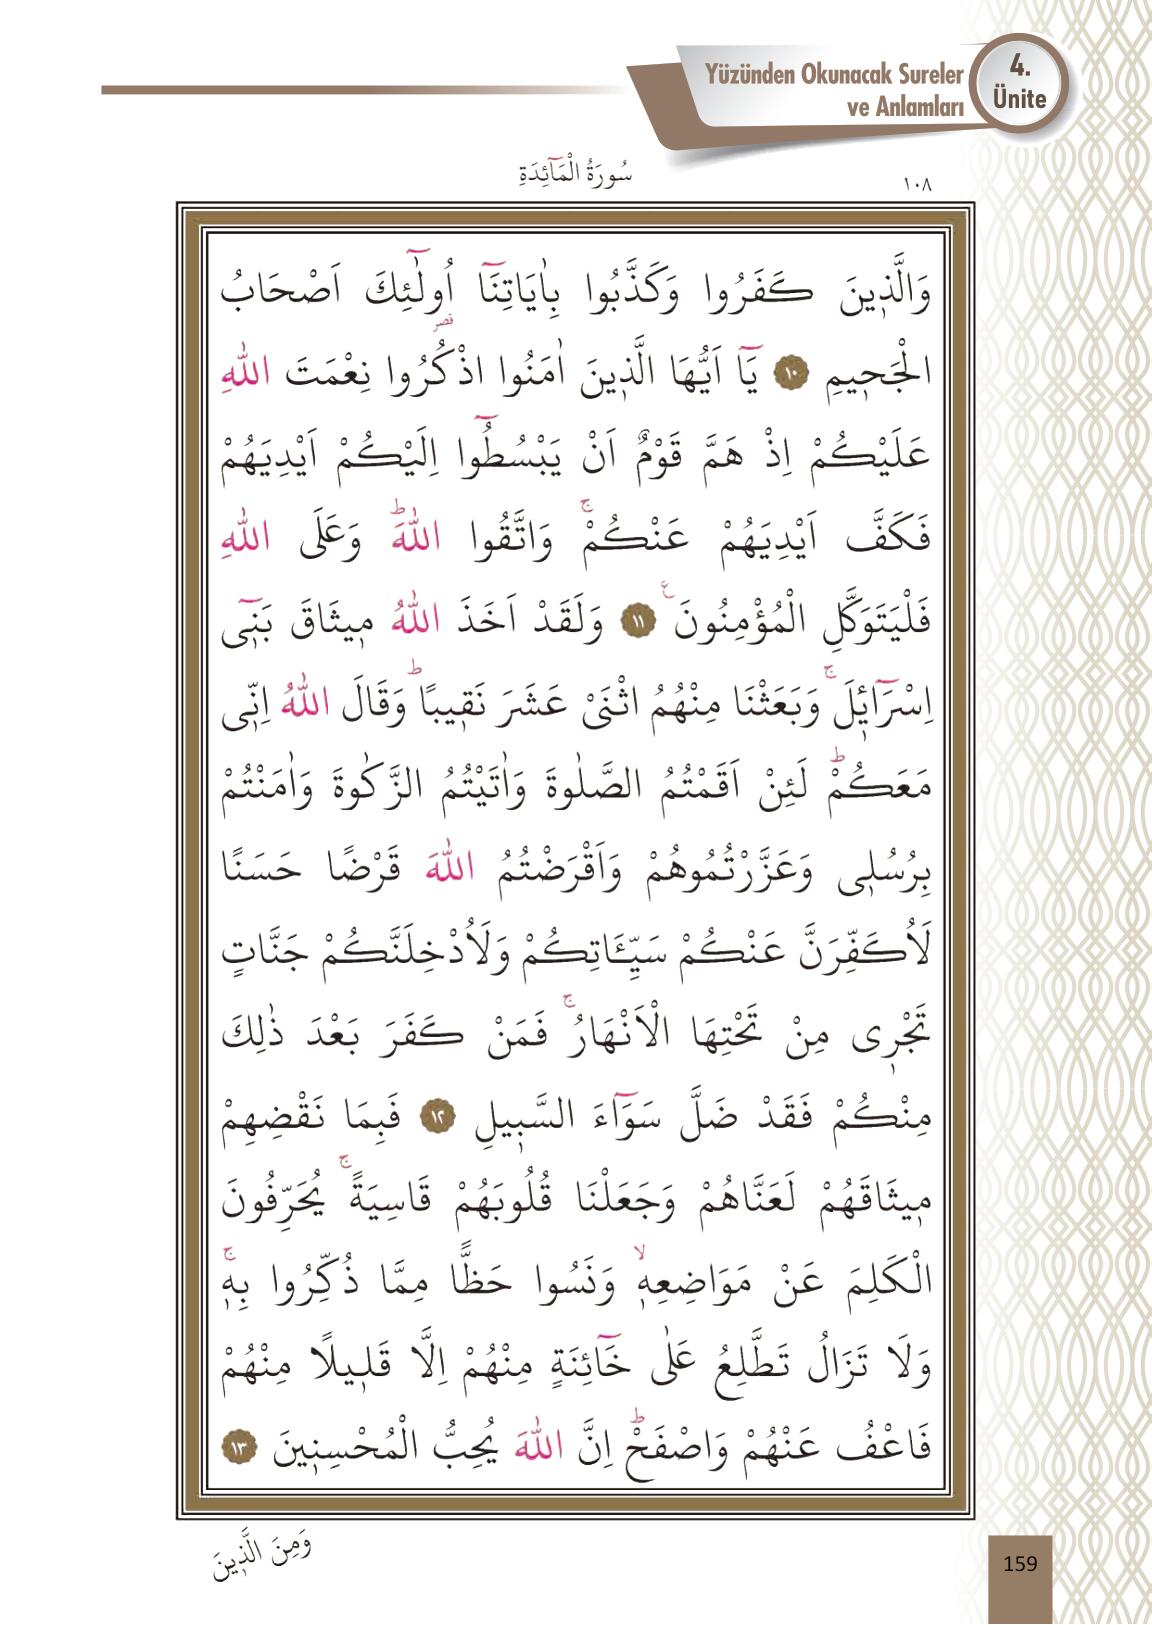 Yüzünden Okunacak Sureler
ve Anlamları
4.
Ünite
سُورَةُ الْمَٓائِدَةِ
١٠٨
وَالَّذ۪ينَ كَفَرُوا وَكَذَّبُوا بِاٰيَاتِنَٓا اُو۬لٰٓئِكَ اَصْحَابُ
الْجَح۪يمِ ١٠ يَٓا اَيُّهَا الَّذ۪ينَ اٰمَنُوا اذْكُرُوا نِعْمَتَ اللّٰهِ
عَلَيْكُمْ اِذْ هَمَّ قَوْمٌ اَنْ يَبْسُطُٓوا اِلَيْكُمْ اَيْدِيَهُمْ
فَكَفَّ اَيْدِيَهُمْ عَنْكُمْۚ وَاتَّقُوا اللّٰهَۜ وَعَلَى اللّٰهِ
فَلْيَتَوَكَّلِ الْمُؤْمِنُونَ۟ ١١ وَلَقَدْ اَخَذَ اللّٰهُ م۪يثَاقَ بَن۪ٓى
اِسْرَٓائ۪لَۚ وَبَعَثْنَا مِنْهُمُ اثْنَىْ عَشَرَ نَق۪يبًاۜ وَقَالَ اللّٰهُ اِنّ۪ى
مَعَكُمْۜ لَئِنْ اَقَمْتُمُ الصَّلٰوةَ وَاٰتَيْتُمُ الزَّكٰوةَ وَاٰمَنْتُمْ
بِرُسُل۪ى وَعَزَّرْتُمُوهُمْ وَاَقْرَضْتُمُ اللّٰهَ قَرْضًا حَسَنًا
لَاُكَفِّرَنَّ عَنْكُمْ سَيِّـَٔاتِكُمْ وَلَاُدْخِلَنَّكُمْ جَنَّاتٍ
تَجْر۪ى مِنْ تَحْتِهَا الْاَنْهَارُۚ فَمَنْ كَفَرَ بَعْدَ ذٰلِكَ
مِنْكُمْ فَقَدْ ضَلَّ سَوَٓاءَ السَّب۪يلِ ١٢ فَبِمَا نَقْضِهِمْ
م۪يثَاقَهُمْ لَعَنَّاهُمْ وَجَعَلْنَا قُلُوبَهُمْ قَاسِيَةًۚ يُحَرِّفُونَ
الْكَلِمَ عَنْ مَوَاضِعِه۪ۙ وَنَسُوا حَظًّا مِمَّا ذُكِّرُوا بِه۪ۚ
وَلَا تَزَالُ تَطَّلِعُ عَلٰى خَٓائِنَةٍ مِنْهُمْ اِلَّا قَل۪يلًا مِنْهُمْ
فَاعْفُ عَنْهُمْ وَاصْفَحْۜ اِنَّ اللّٰهَ يُحِبُّ الْمُحْسِن۪ينَ ١٣
وَمِنَ الَّذ۪ينَ
159